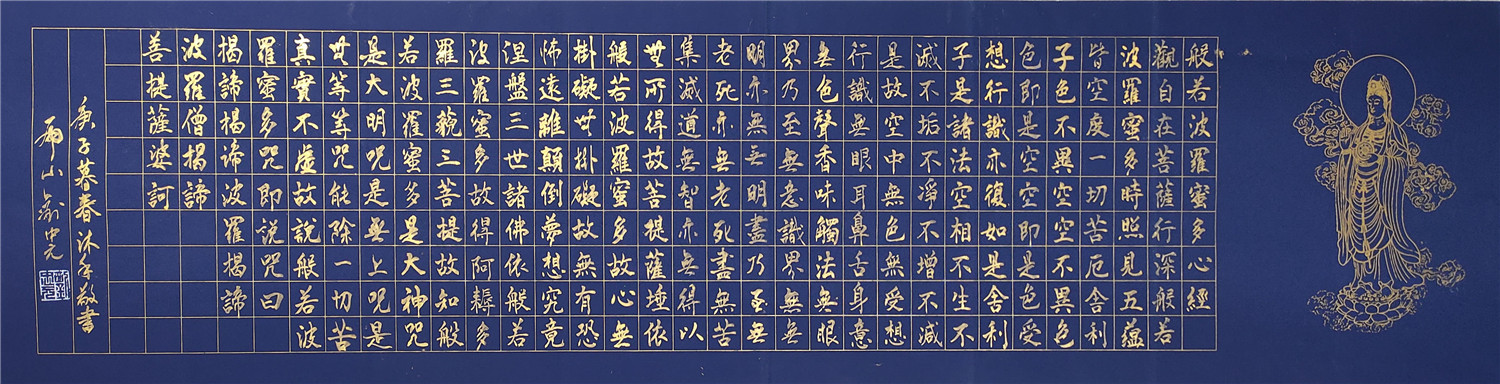 般若波羅蜜多心經
觀自在菩薩行深般若
波羅蜜多時照見五蘊
皆空度一切苦厄舍利
子色不異空空不異色
色即是空空即是色受
想行識亦復如是舍利
子是諸法空相不生不
滅不垢不淨不增不減
是故空中無色無受想
行識無眼耳鼻舌身意
無色聲香味觸法無眼
界乃至無意識界無無
明亦無無明盡乃至無
老死亦無老死盡無苦
集滅道無智亦無得以
無所得故菩提薩埵依
般若波羅蜜多故心無
掛礙無掛礙故無有恐
怖遠離顛倒夢想究竟
涅盤三世諸佛依般若
波羅蜜多故得阿耨多
羅三藐三菩提故知般
若波羅蜜多是大神咒
是大明咒是無上咒是
無等等咒能除一切苦
真實不虛故說般若波
羅蜜多咒即說咒曰
揭諦揭諦波羅揭諦
波羅僧揭諦
菩提薩婆訶
庚子暮春沐手敬書
中元